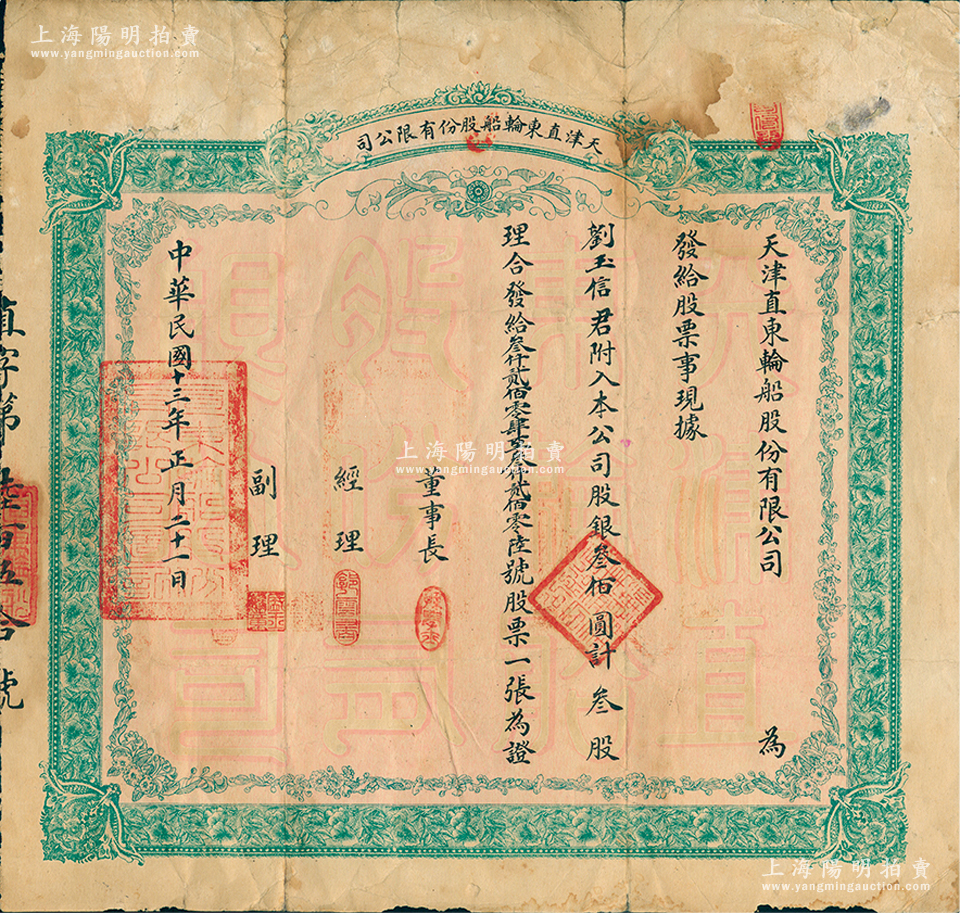 上海陽明拍賣
www.yangmingauction.com
天津直東輪船股份有限公司
天津直東輪船股份有限公司 為
發給股票事現據
劉玉信君附入本公司股銀叁佰圓計叁股
理合發給叁仟貳佰零肆至叁仟貳佰零陸號股票一張為證
董事長
經理
副理
中華民國十三年正月二十一日
直字第 陸百五拾號
上海陽明拍賣
www.yangmingauction.com
上海陽明拍賣
www.yangmingauction.com